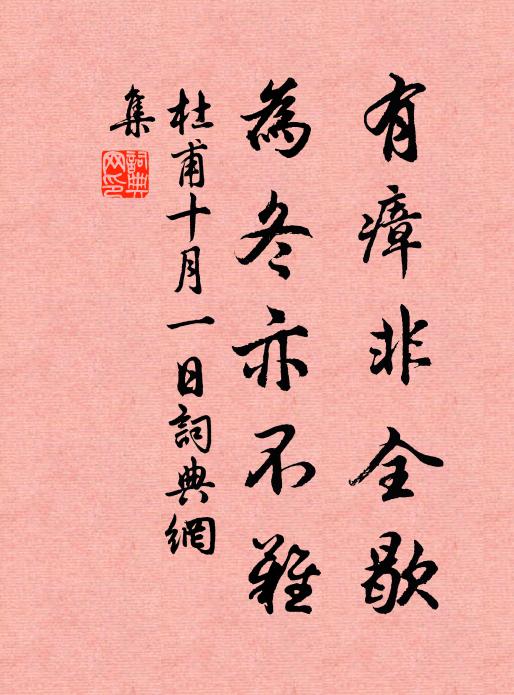 有瘴非全歇
為冬亦不難
杜甫十月一日詞典網
集
詞典
网印